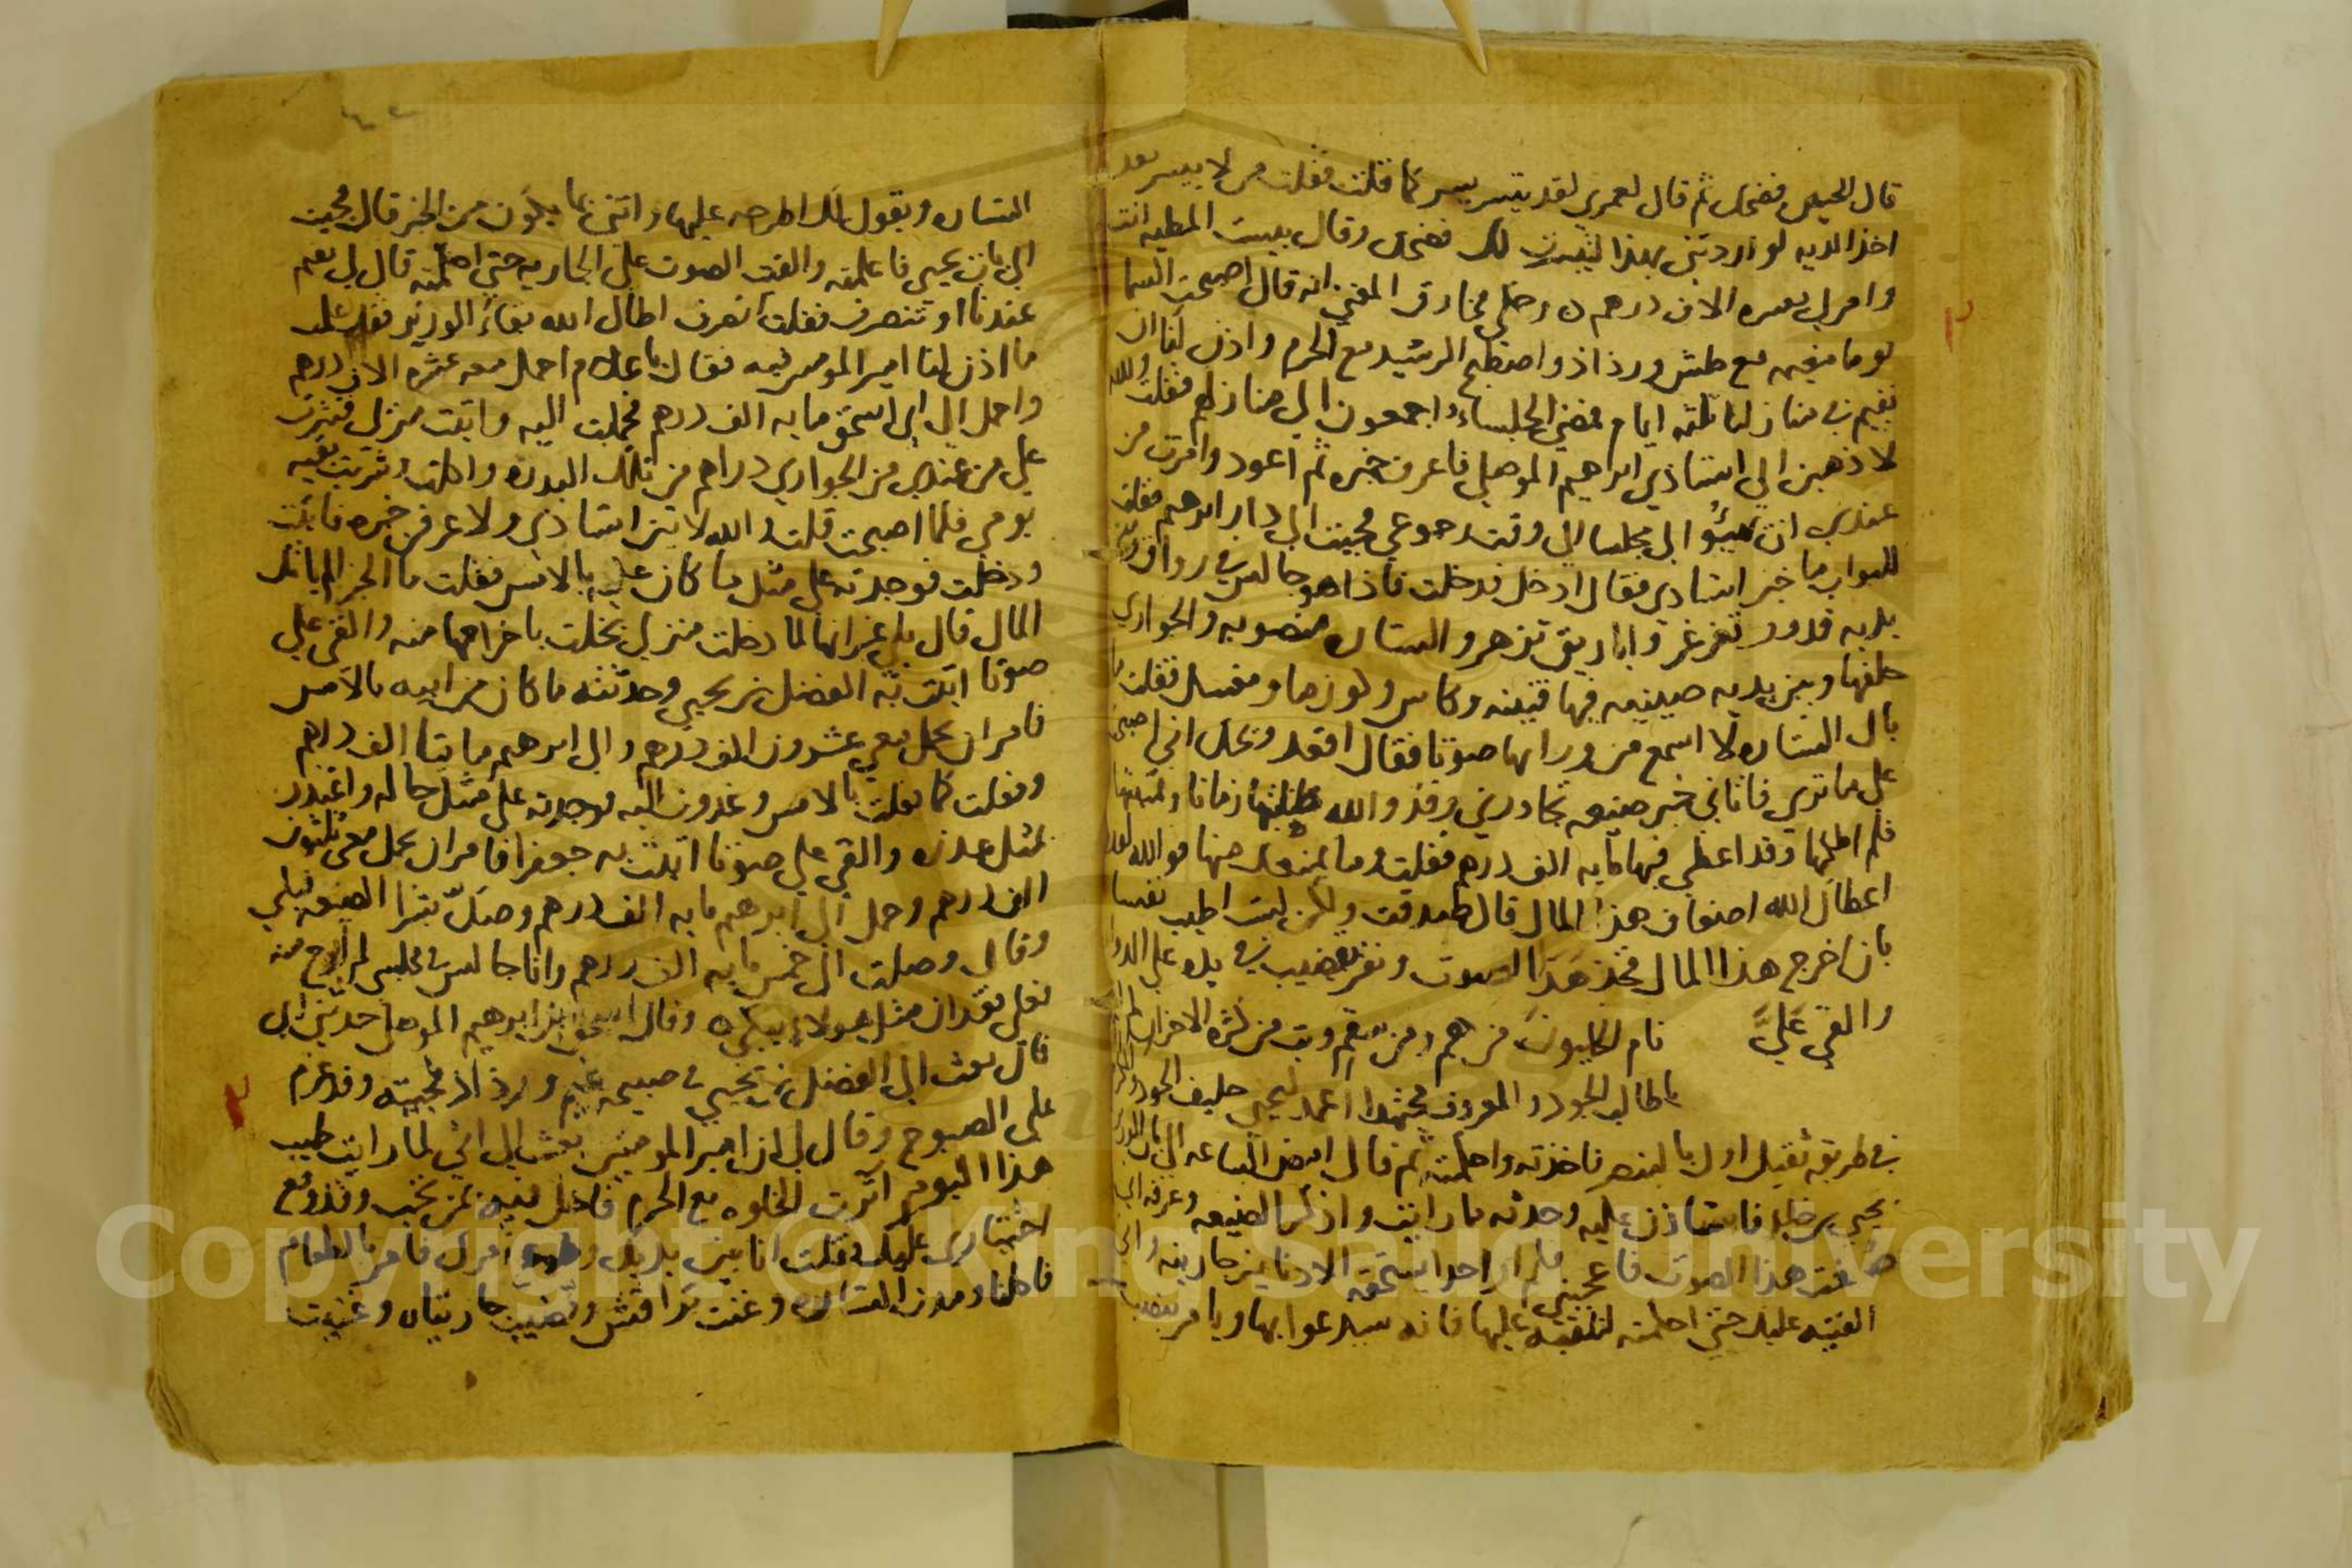 قال الحيص فضحك ثم قال لعمري لقد تيسر يسر كما قلت فقلت من لا ييسر بعد
اخذ الديه لو اردتني بهذا لك فضحك وقال بيست المطيه انت
وامر لي بعشره الاف درهم وحكى مخارق المغني انه قال اصبحت السما
يوما مغيمه مع طش ورذاذ واصطبح الرشيد مع الحرم واذن لنا ان
نقيم في منازلنا ثلثه ايام فمضى الجلساء اجمعون الى منازلهم فقلت والله
لا ذهبن الى استاذي ابراهيم الموصلي فاعرف خبره ثم اعود وامرت من
عندي ان يهيئوا لي مجلسا الى وقت رجوعي فجيت الى دار ابرهيم فقلت
للبواب ما خبر استاذي فقال ادخل فدخلت فاذا هو جالس في رواق وبين
يديه قدور تغرغر واباريق تزهر والستاره منصوبه والجواري
خلفها وبين يديه صينيه فيها قنينه وكاس وكوز ما ومغسل فقلت ما
بال الستاره لا اسمع من ورايها صوتا فقال اقعد ويحك اني اصبحت
على ما ترى فاتاني خبر ضيعه تجاورني وقد والله طلبتها زمانا وتمنيتها
فلم املكها وقد اعطي فيها مايه الف درهم فقلت وما يمنعك منها فوالله لقد
اعطاك الله اضعاف هذا المال قال صدقت ولكن لست اطيب نفسا
بان اخرج هذا المال فخذ هذا الصوت ونقر بقضيب في يده على الدواه
والقى عليّ نام الخليون من هم ومن سقم وبت من كثرة الاحزان لم انم
يا طالب الجود والمعروف مجتهدا اعمد ليحيى حليف الجود والكرم
في طريقة ثقيل اول بالبنصر فاخذته واحكمته ثم قال امض الساعه الى باب الوزير
يحيى بن خالد فاستاذن عليه وحدثه ما رايت واذكر الضيعه وعرفه اني
صنعت هذا الصوت فاعجبني فلم ار احدا يستحقه الا دنانير جاريته واني
القيته عليك حتى احكمته لتلقيه عليها فانه سيدعوا بها ويامر بنصب
الستاره ويقول لك اطرحه عليها واتني بما يكون من الخبر قال فجيت
الى باب يحيى فاعلمته والقيت الصوت على الجاريه حتى احكمته قال لي تقيم
عندنا او تنصرف فقلت انصرف اطال الله بقاء الوزير فقد علمت
ما اذن لنا امير المومنين فيه فقال يا غلام احمل معه عشرة الاف درهم
واحمل الى ابي اسحق مايه الف درهم فحملت اليه واتيت منزلي فنثرت
على من عندي من الجواري دراهم من تلك البدره واكلت وشربت بقيه
يومي فلما اصبحت قلت والله لاتين استاذي ولاعرفن خبره فاتيت
ودخلت فوجدته على مثل ما كان عليه بالامس فقلت ما الخبر الم ياتك
المال قال بلى غير انها لما دخلت منزلي بخلت باخراجها منه والقى علي
صوتا اتيت به الفضل بن يحيى وحدثته ما كان من ابيه بالامس
فامر ان يحمل معي عشرون الف درهم والى ابرهيم مايتا الف درهم
وفعلت كما فعلت بالامس وغدوت اليه فوجدته على مثل حاله واعتذر
بمثل عذره والقى علي صوتا اتيت به جعفرا فامر ان يحمل معي ثلثون
الف درهم وحمل الى ابرهيم مايه الف درهم وصكّ بشرا الضيعه
وقال وصلت الي خمس مايه الف درهم وانا جالس في مجلسي لم ابرح منه
فعلى فقدان مثل هولاء يبكى وقال اسحق بن ابرهيم الموصلي حدثني ابي
قال بعث الي الفضل بن يحيى في صبيحه غيم ورذاذ فجيته وقد عزم
على الصبوح وقال لي ان امير المومنين بعث الي اني لما رايت طيب
هذا اليوم آثرت الخلوه مع الحرم فاخل فيه بمن تحب وقد وقع
اختياري عليك فقلت انا بين يديك امرك فامر بالطعام
فاكلنا ومدت الستاره وغنت براقش وقضيب جاريتاه وغنيت